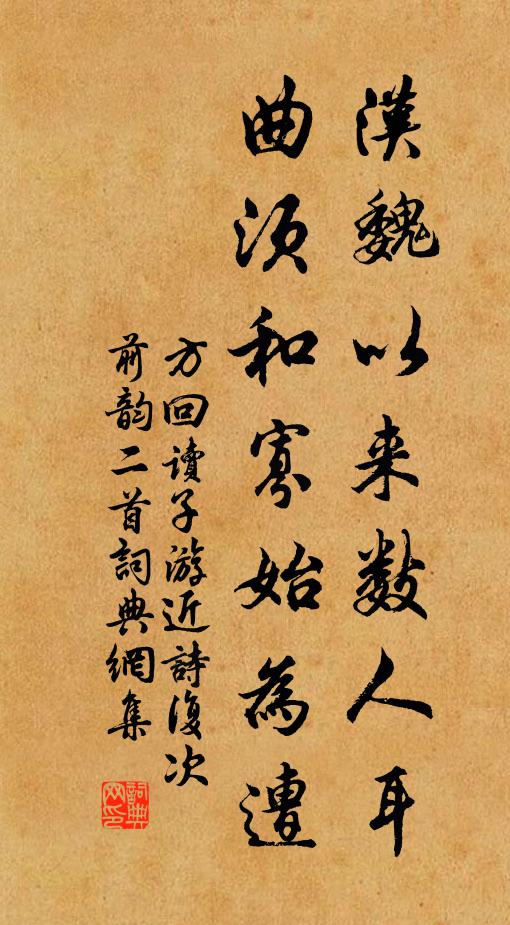 漢魏以来数人耳
曲须和寡始為遭
方回读子游近詩復次
前韵二首詞典網集
詞典网印